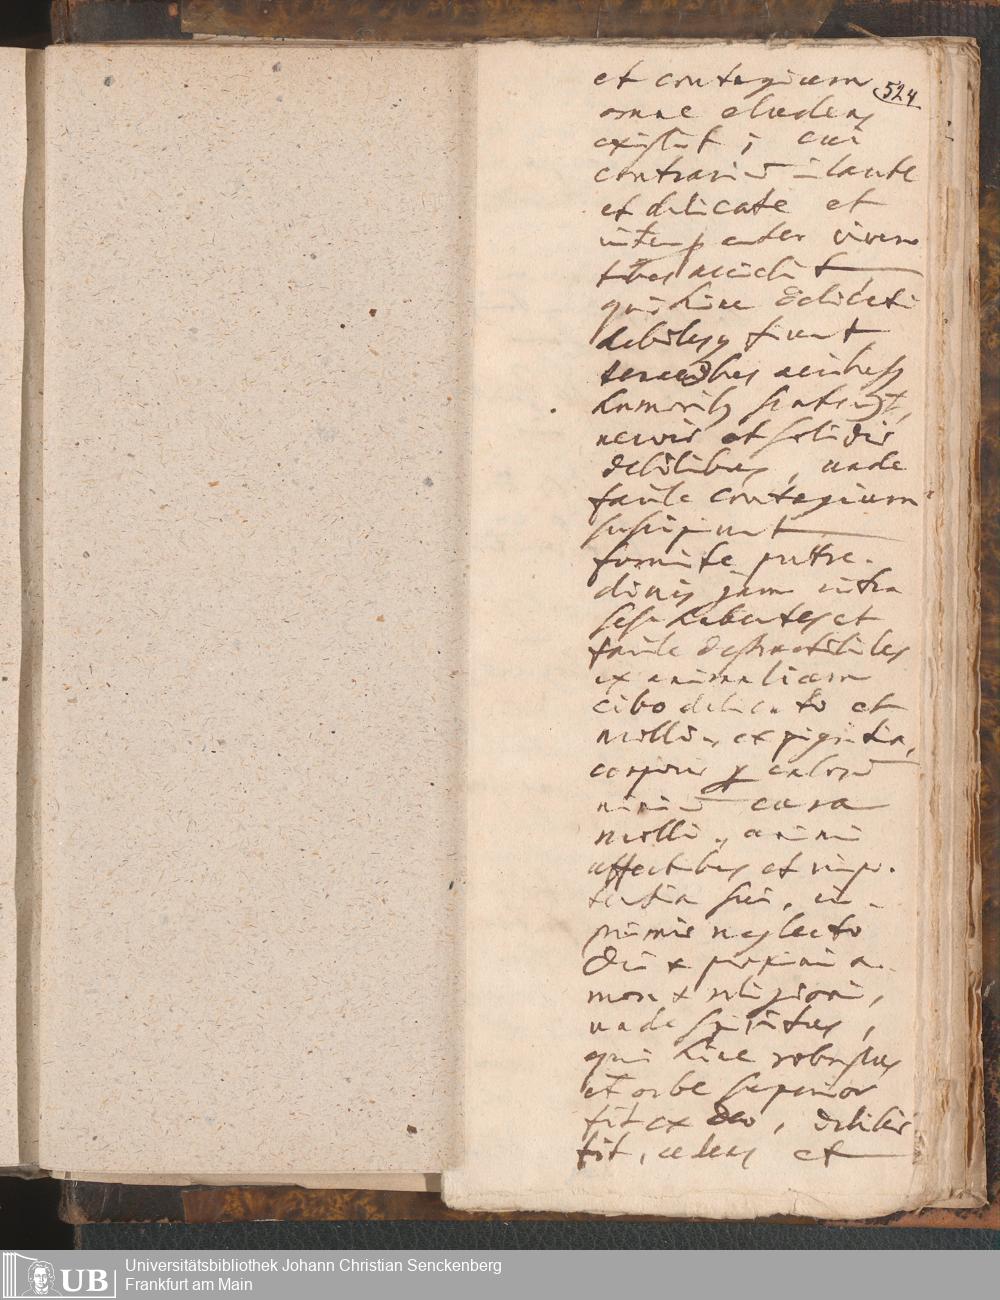 524
et contagium
omne eludens
existit; cui
contrarium in laute
et delicate et
intemperanter viven
tibus accidit
qui hinc delicati
debilesq fiunt
tenacibus acribusq
humorib scatent,
nervis et solidis
debilibus, unde
facile contagium
suscipiunt
fomite putre-
dinis jam intra
sese habentes et
facile destructibiles
ex animalium
cibo delicato et
molli, ex pigritia,
corporis calorum
nimium cura
molli, animi
affectibus et impo-
tentia sui, in-
primis neglecto
Dei & proximi a-
more & religioni,
unde spiritus,
qui hinc robustus
et orbe superior
fit ex Deo, debilis
fit, cedens et
Universitätsbibliothek Johann Christian Senckenberg
Frankfurt am Main
UB